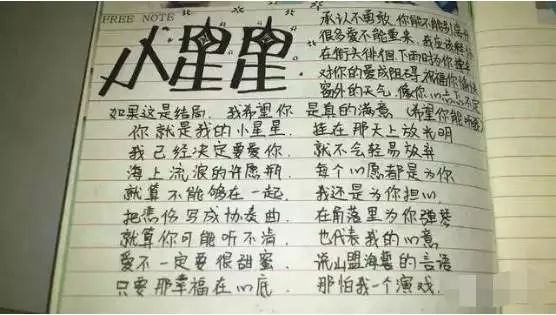 FREE NOTE
小星星
承认不勇敢,你能不能别离开
很多爱不能重来,我应该释怀
在街头徘徊,下雨时为你撑
对你的爱成阻碍,祝福你愉快
窗外的天气,像你心忐忑不定
如果这是结局,我希望你 是真的满意 (希望你能听
你就是我的小星星, 挂在那天上放光明
我已经决定要爱你, 就不会轻易放弃
海上流浪的许愿瓶, 每个心愿都是为你
就算不能够在一起, 我还是为你担心
把悲伤写成协奏曲, 在角落里为你弹琴
就算你可能听不清, 也代表我的心意
爱不一定要很甜蜜, 说山盟海誓的言语
只要那幸福在心底, 那怕我一个演戏.